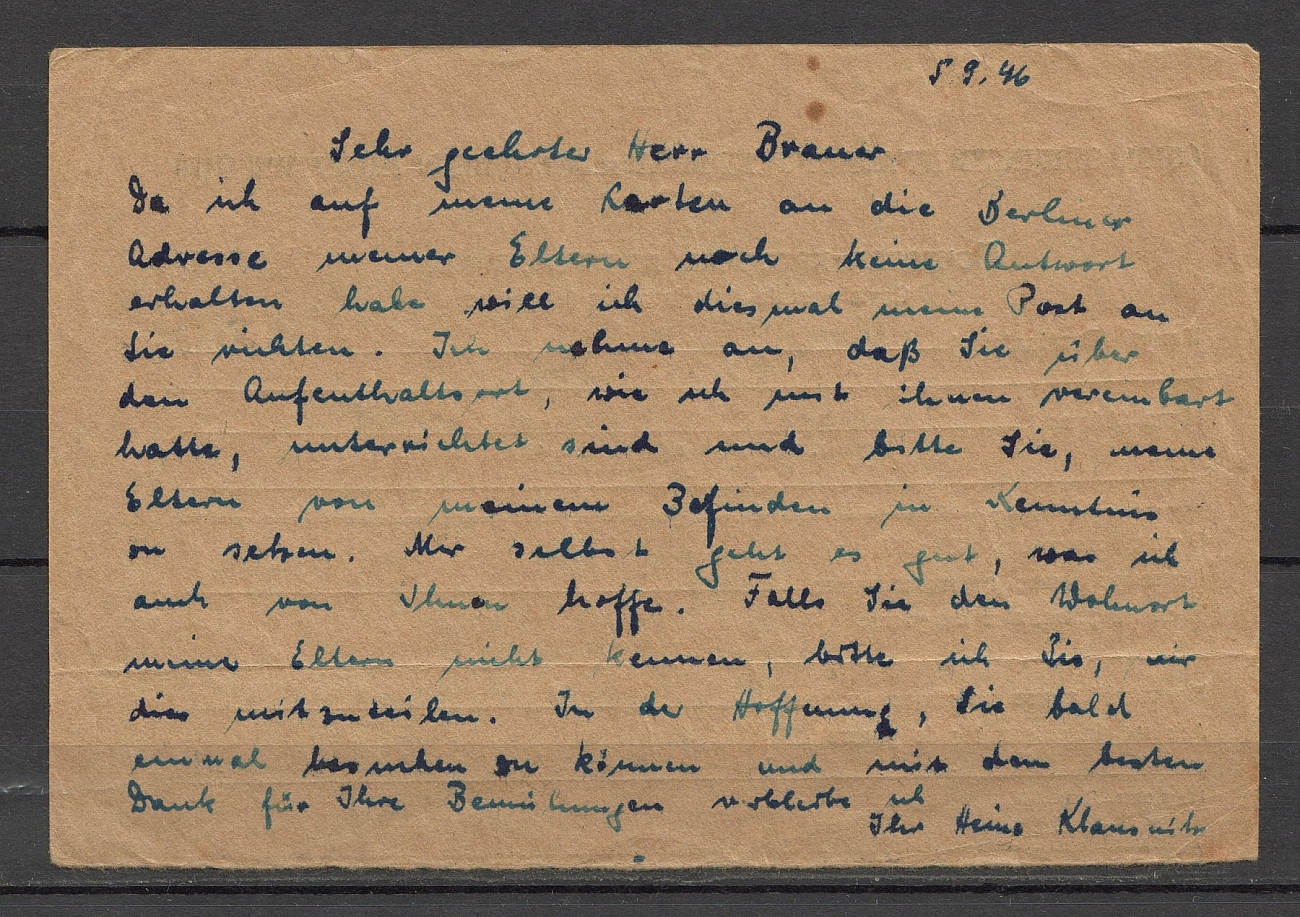 5.9.46
Sehr geehrter Herr Brauer
Da ich auf meine Karten an die Berliner
Adresse meiner Eltern noch keine Antwort
erhalten habe will ich diesmal meine Post an
Sie richten. Ich nehme an, daß Sie über
den Aufenthaltsort, wie ich mit ihnen vereinbart
hatte, unterrichtet sind und bitte Sie, meine
Eltern von meinem Befinden in Kenntnis
zu setzen. Mir selbst geht es gut, was ich
auch von Ihnen hoffe. Falls Sie den Wohnort
meiner Eltern nicht kennen, bitte ich Sie, mir
dies mitzuteilen. In der Hoffnung, Sie bald
einmal besuchen zu können und mit dem besten
Dank für Ihre Bemühungen verbleibe ich
Ihr Heinz